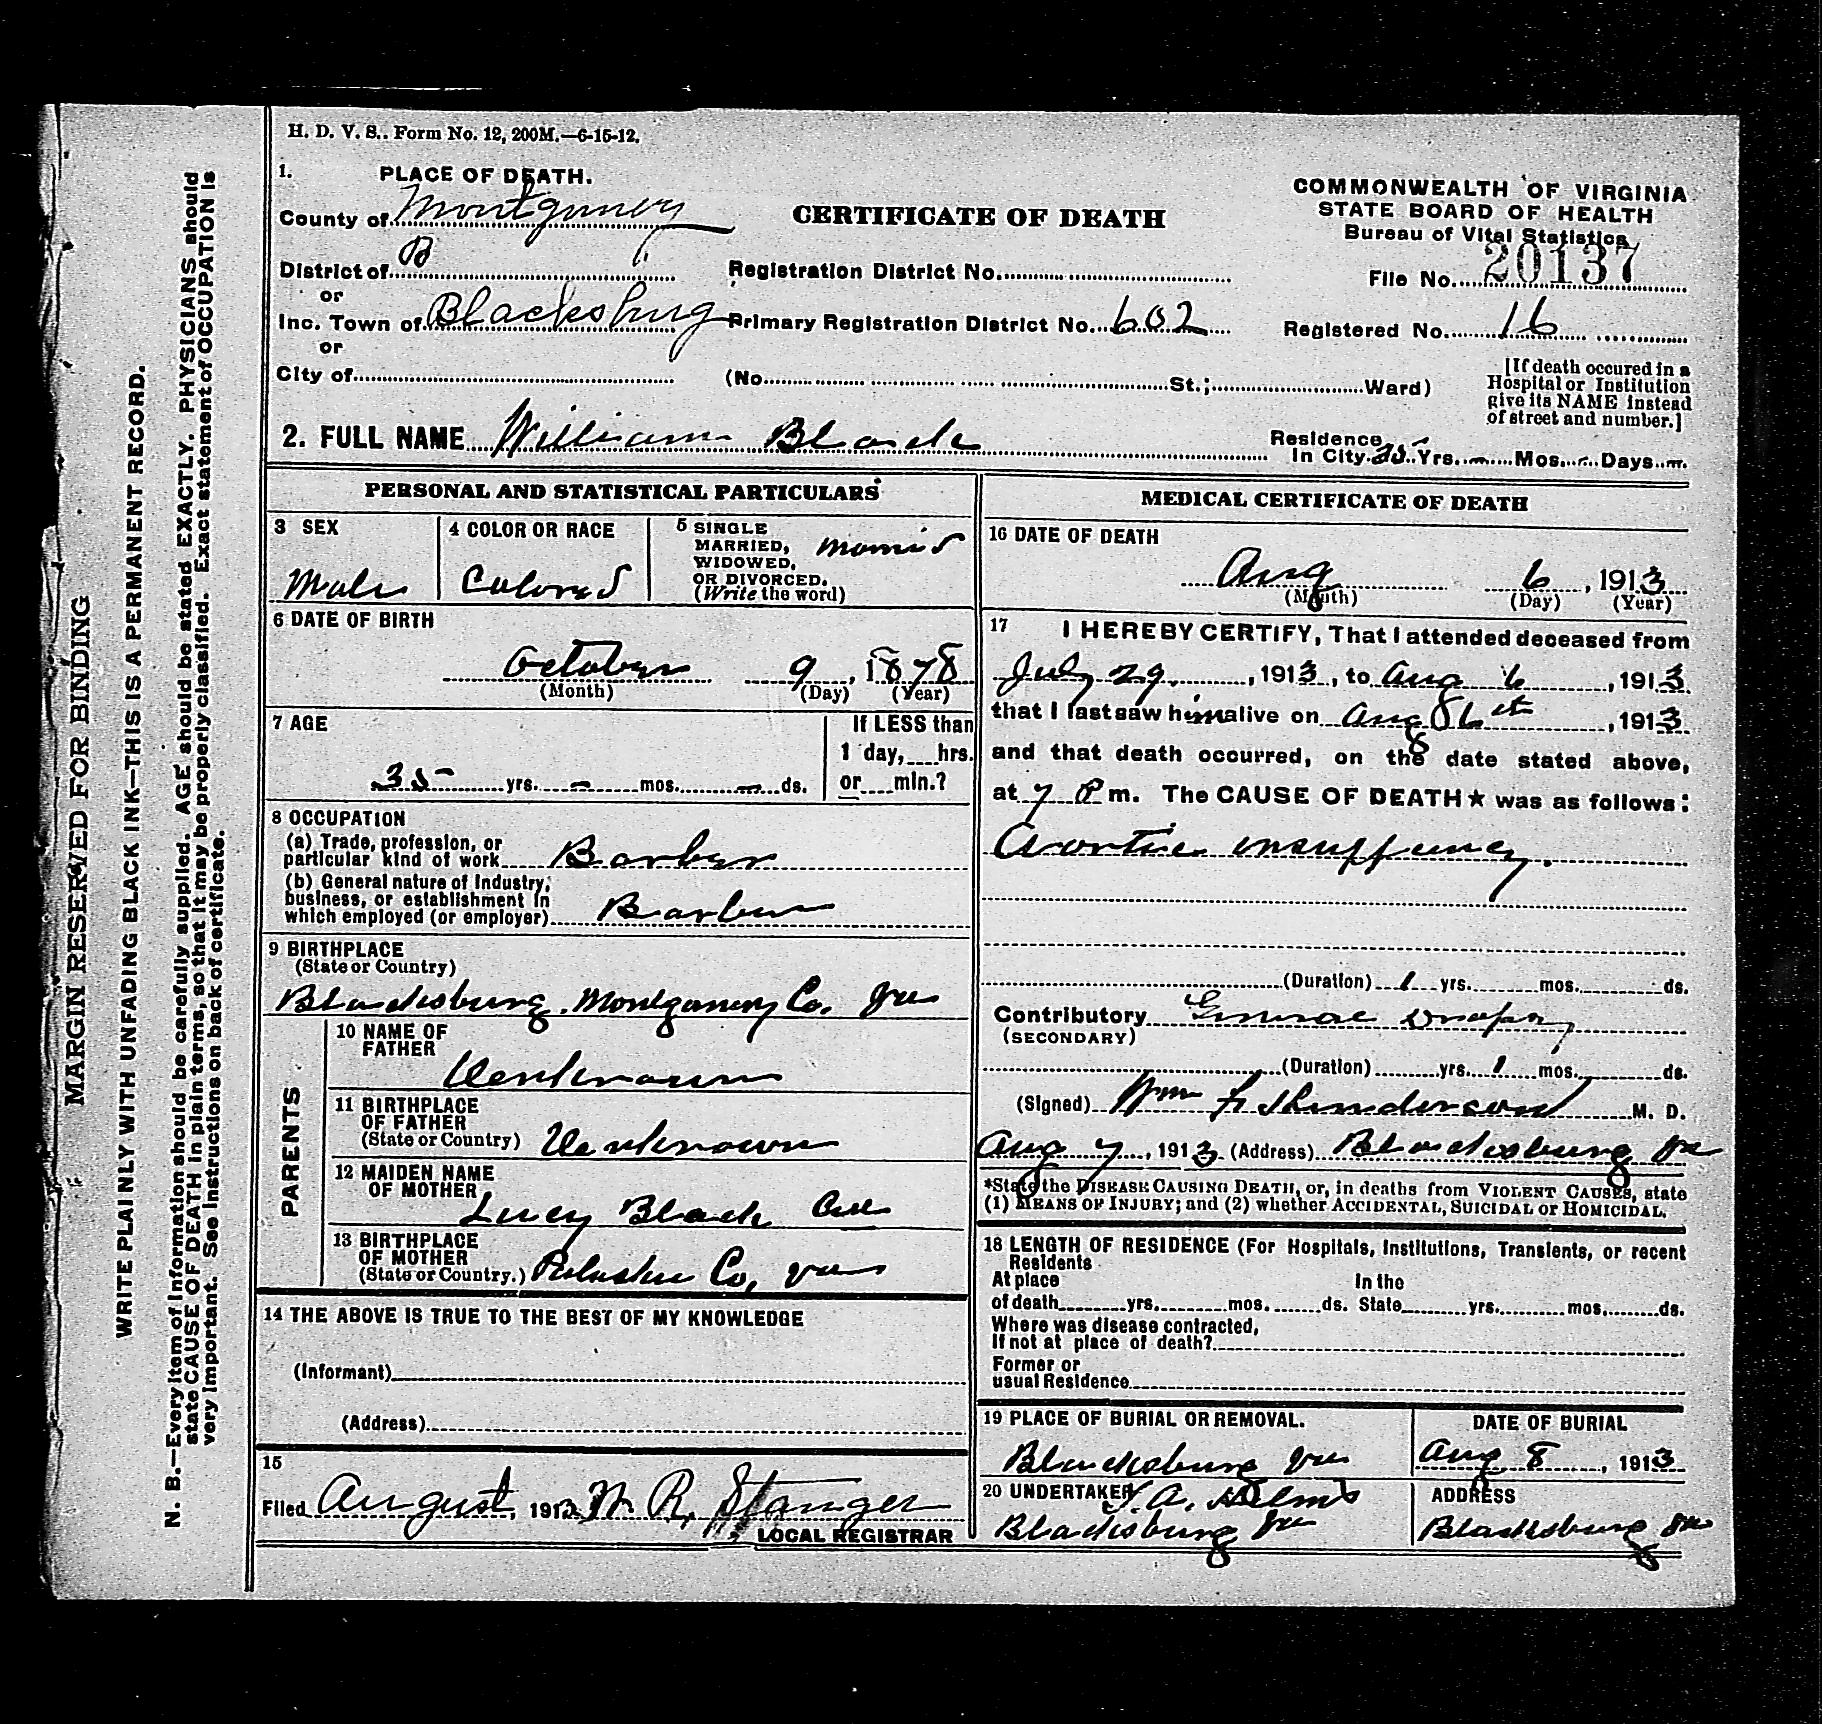 H. D. V. S.. Form No. 12, 200M.—6-15-12.
1. PLACE OF DEATH.
County of Montgomery
District of B
or
Inc. Town of Blacksburg
or
City of
CERTIFICATE OF DEATH
Registration District No.
Primary Registration District No. 602
(No. St.; Ward)
COMMONWEALTH OF VIRGINIA
STATE BOARD OF HEALTH
Bureau of Vital Statistics
File No. 20137
Registered No. 16
[If death occured in a
Hospital or Institution
give its NAME instead
of street and number.]
2. FULL NAME William Black
Residence
In City 35 Yrs. — Mos. — Days —
PERSONAL AND STATISTICAL PARTICULARS
3 SEX
Male
4 COLOR OR RACE
Colored
5 SINGLE
MARRIED,
WIDOWED,
OR DIVORCED.
(Write the word)
Married
6 DATE OF BIRTH
October 9, 1878
(Month) (Day) (Year)
7 AGE
35 yrs. — mos. — ds.
If LESS than
1 day, hrs.
or min.?
8 OCCUPATION
(a) Trade, profession, or
particular kind of work Barber
(b) General nature of Industry,
business, or establishment in
which employed (or employer) Barber
9 BIRTHPLACE
(State or Country)
Blacksburg. Montgomery Co. Va
PARENTS
10 NAME OF
FATHER
Unknown
11 BIRTHPLACE
OF FATHER
(State or Country) Unknown
12 MAIDEN NAME
OF MOTHER
Lucy Black
13 BIRTHPLACE
OF MOTHER
(State or Country.) Pulaski Co, Va
14 THE ABOVE IS TRUE TO THE BEST OF MY KNOWLEDGE
(Informant)
(Address)
15
Filed August, 1913 W. R. Stanger
LOCAL REGISTRAR
MEDICAL CERTIFICATE OF DEATH
16 DATE OF DEATH
Aug 6, 1913
(Month) (Day) (Year)
17 I HEREBY CERTIFY, That I attended deceased from
July 29, 1913, to Aug 6, 1913
that I last saw him alive on Aug 6th, 1913
and that death occurred, on the date stated above,
at 7 P m. The CAUSE OF DEATH★ was as follows:
Aortic insuffuncy.
(Duration) 1 yrs. mos. ds.
Contributory General Dropsy
(SECONDARY)
(Duration) yrs. 1 mos. ds.
(Signed) Wm F. Henderson M. D.
Aug 7, 1913 (Address) Blacksburg Va
*State the DISEASE CAUSING DEATH, or, in deaths from VIOLENT CAUSES, state
(1) MEANS OF INJURY; and (2) whether ACCIDENTAL, SUICIDAL or HOMICIDAL.
18 LENGTH OF RESIDENCE (For Hospitals, Institutions, Transients, or recent
Residents
At place In the
of death yrs. mos. ds. State yrs. mos. ds.
Where was disease contracted,
If not at place of death?
Former or
usual Residence
19 PLACE OF BURIAL OR REMOVAL.
Blacksburg Va
DATE OF BURIAL
Aug 8, 1913
20 UNDERTAKER T. A. Helms
Blacksburg Va
ADDRESS
Blacksburg Va
MARGIN RESERVED FOR BINDING
WRITE PLAINLY WITH UNFADING BLACK INK—THIS IS A PERMANENT RECORD.
N. B.—Every item of information should be carefully supplied. AGE should be stated EXACTLY. PHYSICIANS should
state CAUSE OF DEATH in plain terms, so that it may be properly classified. Exact statement of OCCUPATION is
very important. See instructions on back of certificate.